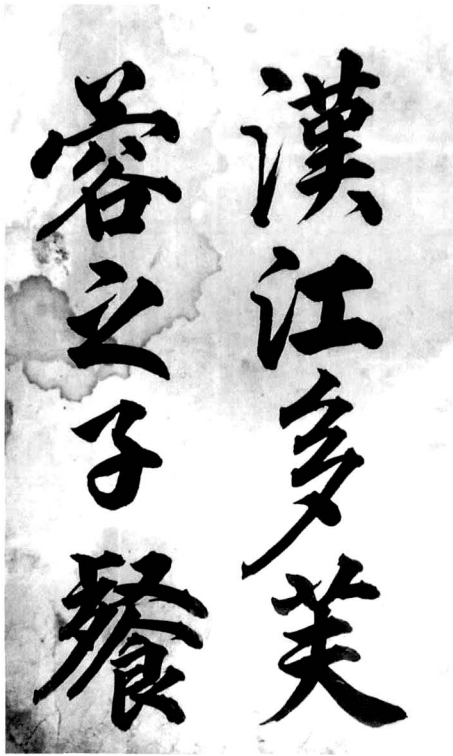 漢江多芙
蓉之子餐